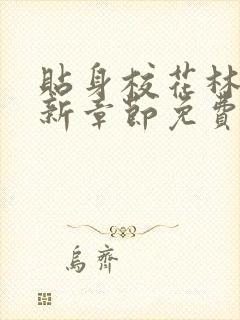 貼身校花林
新章節免費
烏齊